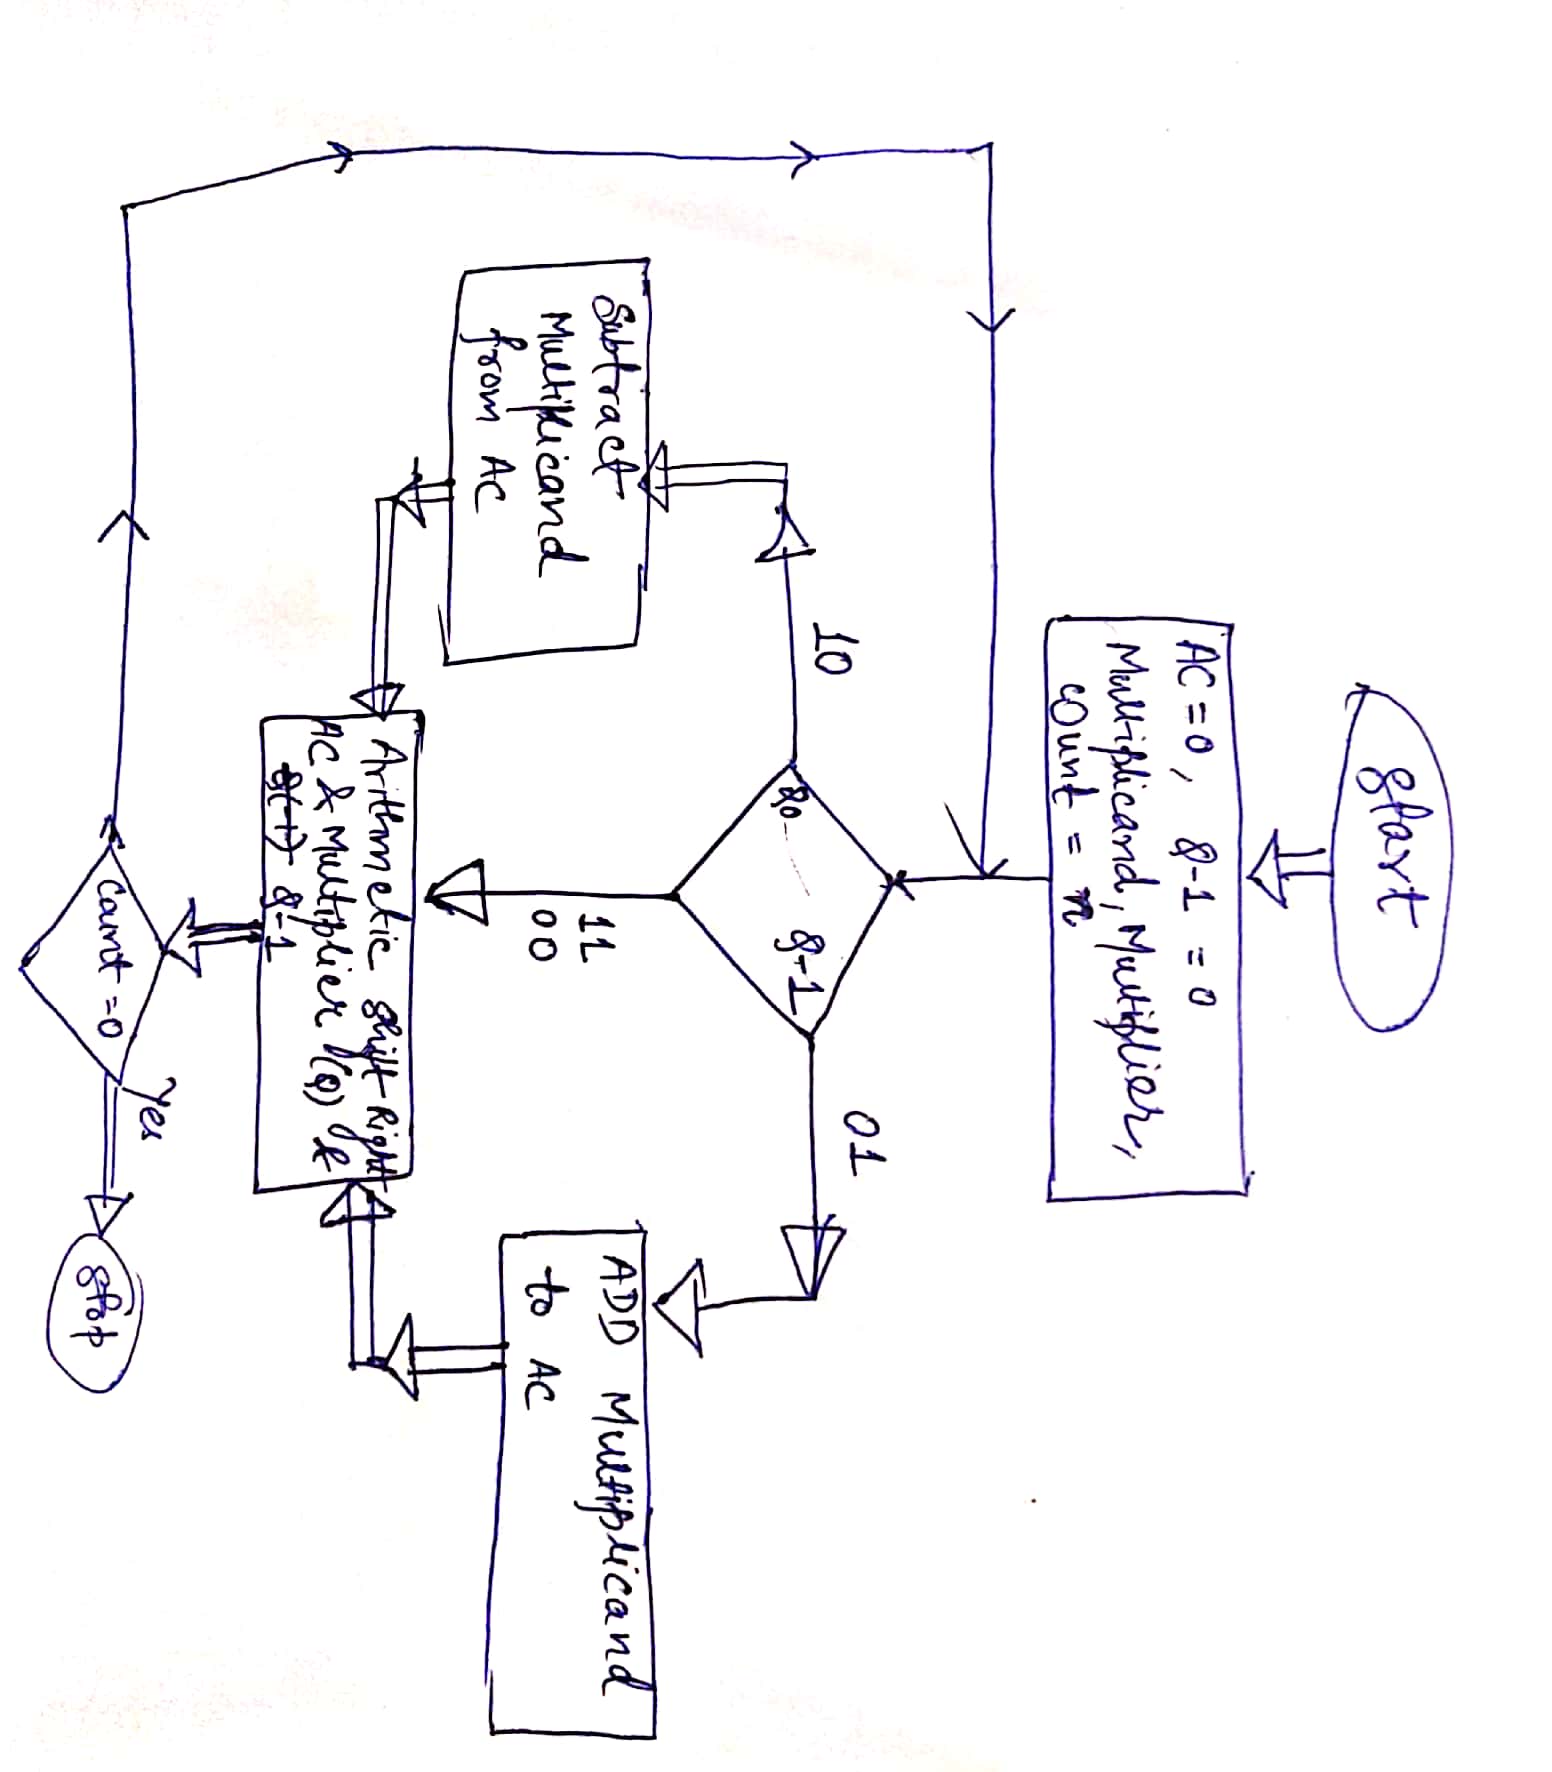 Start
AC = 0, Q-1 = 0
Multiplicand, Multiplier,
count = n
Q0 Q-1
10
01
11
00
Subtract
Multiplicand
from AC
ADD Multiplicand
to AC
Arithmetic Shift Right
AC & Multiplier (Q) &
Q-1
Count = 0
Yes
Stop